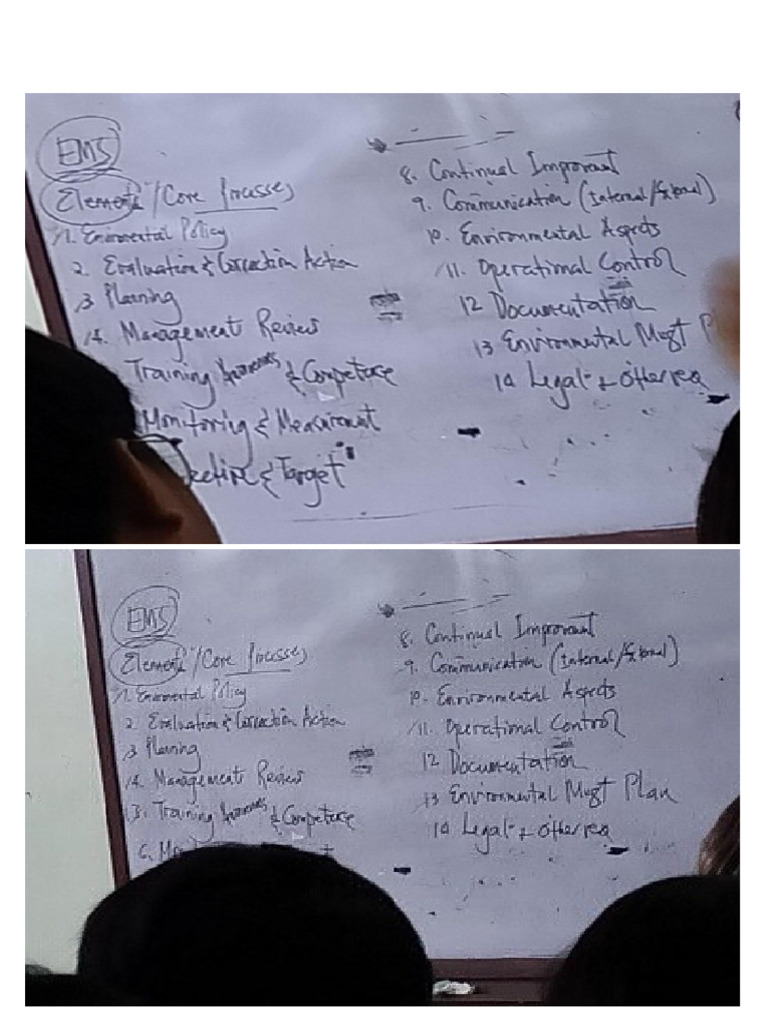 EMS
Elements/Core Processes
1. Enironmental Policy
2. Evaluation & Correction Action
3 Planning
4. Management Review
Training Awareness & Competence
Monitoring & Measurement
ective & Target
8. Continual Improvement
9. Communication (Internal/External)
10. Environmental Aspects
11. Operational Control
12 Documentation
13 Environmental Mugt P
14 Legal & other req
EMS
Elements/Core Processes
1. Enironmental Policy
2. Evaluation & Correction Action
3 Planning
4. Management Review
5. Training Awareness & Competence
6. Mo
8. Continual Improvement
9. Communication (Internal/External)
10. Environmental Aspects
11. Operational Control
12 Documentation
13 Environmental Mugt Plan
14 Legal & other req